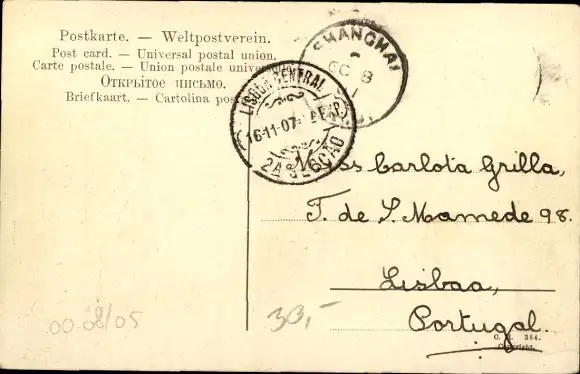 Postkarte. — Weltpostverein.
Post card. — Universal postal union.
Carte postale. — Union postale univers
Открытое письмо.
Briefkaart. — Cartolina pos
SHANGHAI
8
LISBOA CENTRAL
16-11-07
2A SECÇÃO
Miss Carlota Grilla,
T. de S. Mamede 98.
Lisboa,
Portugal.
00-08/05
30,-
C. H. 384.
Copyright.